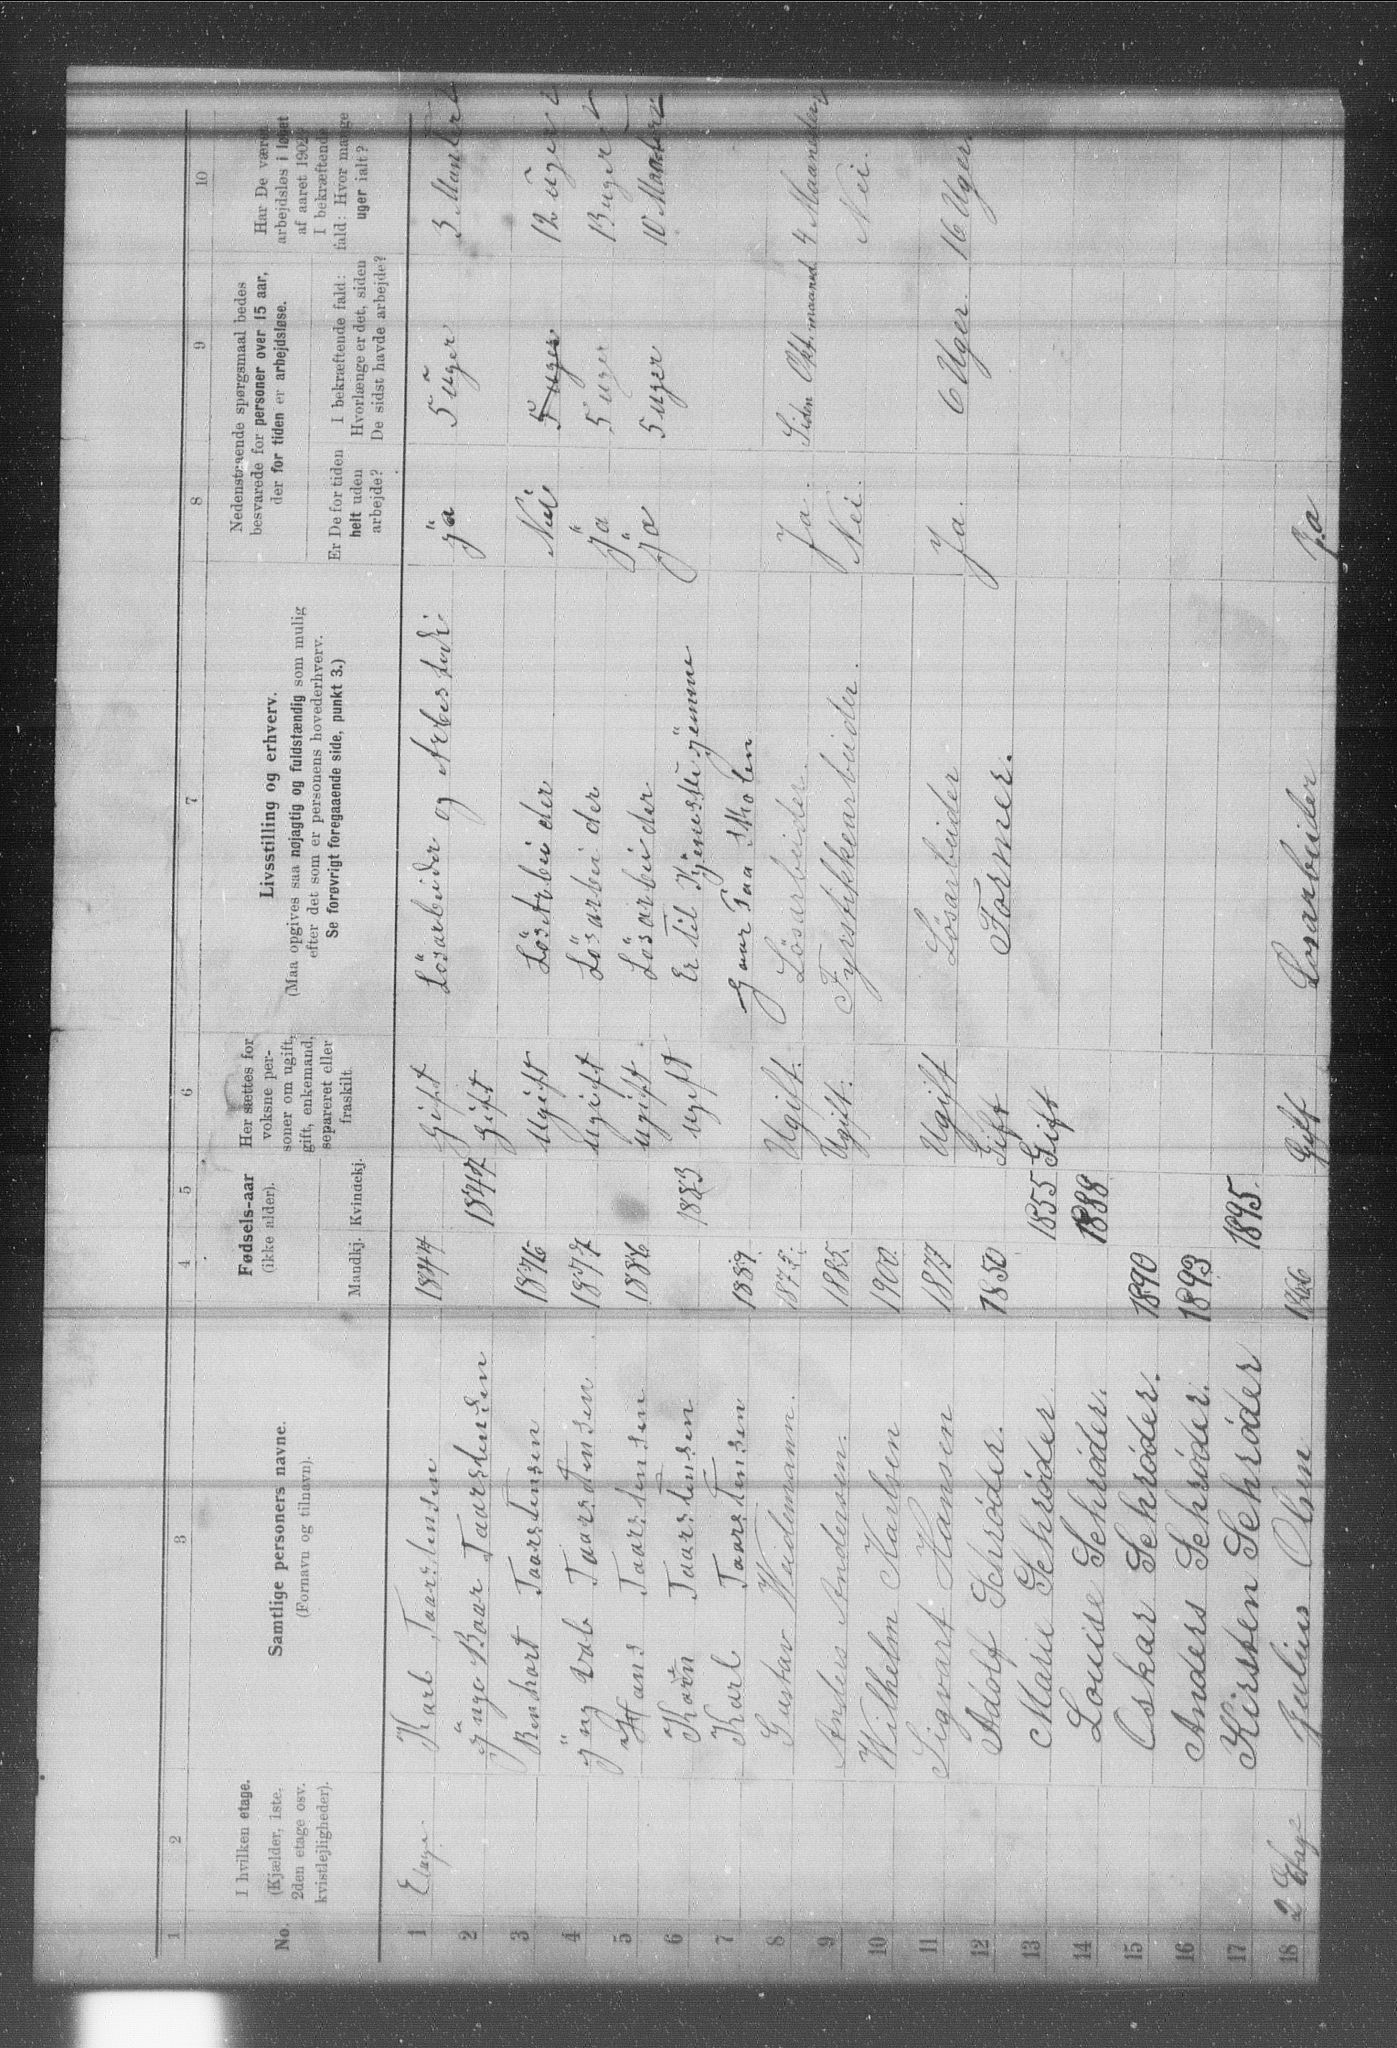 1 2 3 4 5 6 7 8 9 10
No.
I hvilken etage.
(Kjælder, 1ste,
2den etage osv.
kvistlejligheder).
Samtlige personers navne.
(Fornavn og tilnavn).
Fødsels-aar
(ikke alder).
Mandkj. Kvindekj.
Her sættes for
voksne per-
soner om ugift,
gift, enkemand,
separeret eller
fraskilt.
Livsstilling og erhverv.
(Maa opgives saa nøjagtig og fuldstændig som mulig
efter det som er personens hovederhverv.
Se forøvrigt foregaaende side, punkt 3.)
Nedenstaaende spørgsmaal bedes
besvarede for personer over 15 aar,
der for tiden er arbejdsløse.
Er De for tiden
helt uden
arbejde?
I bekræftende fald:
Hvorlænge er det, siden
De sidst havde arbejde?
Har De været
arbejdsløs i løbet
af aaret 1902?
I bekræftende
fald: Hvor mange
uger ialt?
1 Etage Karl Taarstensen 1844 gift Lösarbeider og ja 5 uger 3
2 Baar Taarstensen 1847 gift
3 Taarstensen 1876 ugift Lös Arbeider Nei 5 uger 12 uger
4 Taarstensen 1877 ugift Lösarbeider ja 5 uger 13 uger
5 Hans Taarstensen 1886 ugift Lösarbeider ja 5 uger 10
6 Karen Taarstensen 1883 ugift Er til
7 Karl Taarstensen 1889 gaar paa skolen
8 Gustav Weidemann. Ugift. Lösarbeider. Ja. Siden Okt. maaned. 4 Maaneder
9 Anders Andersen. 1885. Ugift. Fyrstikkearbeider. Nei. Nei.
10 Wilhelm Karlsen 1900
11 Sigvart Hansen 1877 Ugift Lösarbeider Ja. 6 Uger. 16 Uger
12 Adolf Schrøder. 1850 Gift Former.
13 Marie Schrøder 1855 Gift
14 Louise Schrøder. 1888
15 Oskar Schrøder. 1890
16 Anders Schrøder. 1893
17 Kirsten Schrøder 1895.
18 2 Etage Julius Olsen 1866 Gift Losarbeider Ja